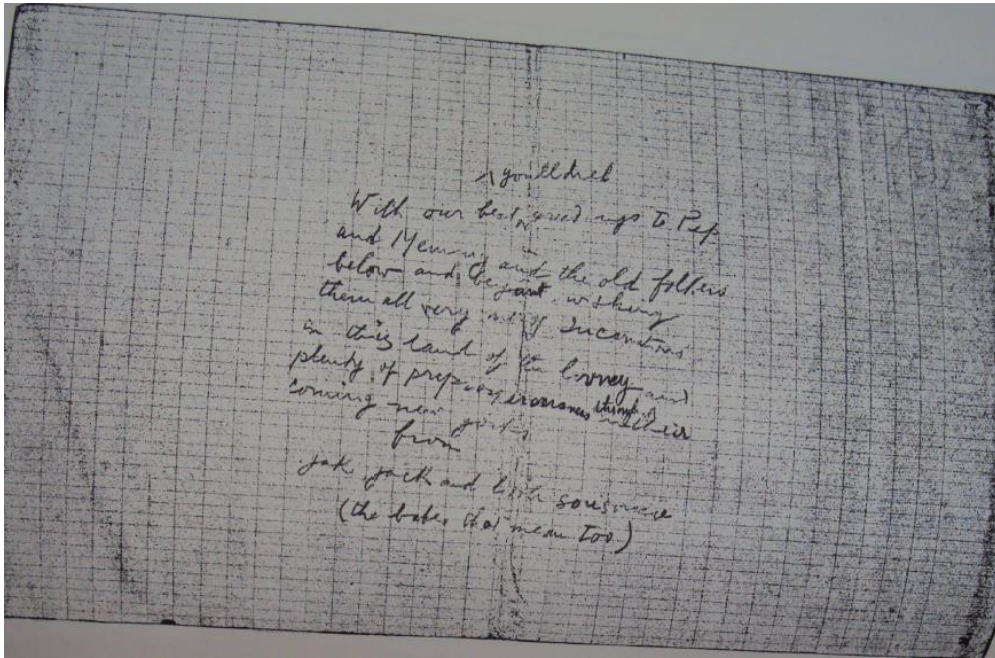 youlldied
With our best greedings to Pep
and Memmy and the old folkers
below and beyant wishing
them all very merry Incarnations
in this land of the livvey and
plenty of preprosperousness through their
coming new yonks
from
jake, jack and little sousoucie
(the babes that mean too)